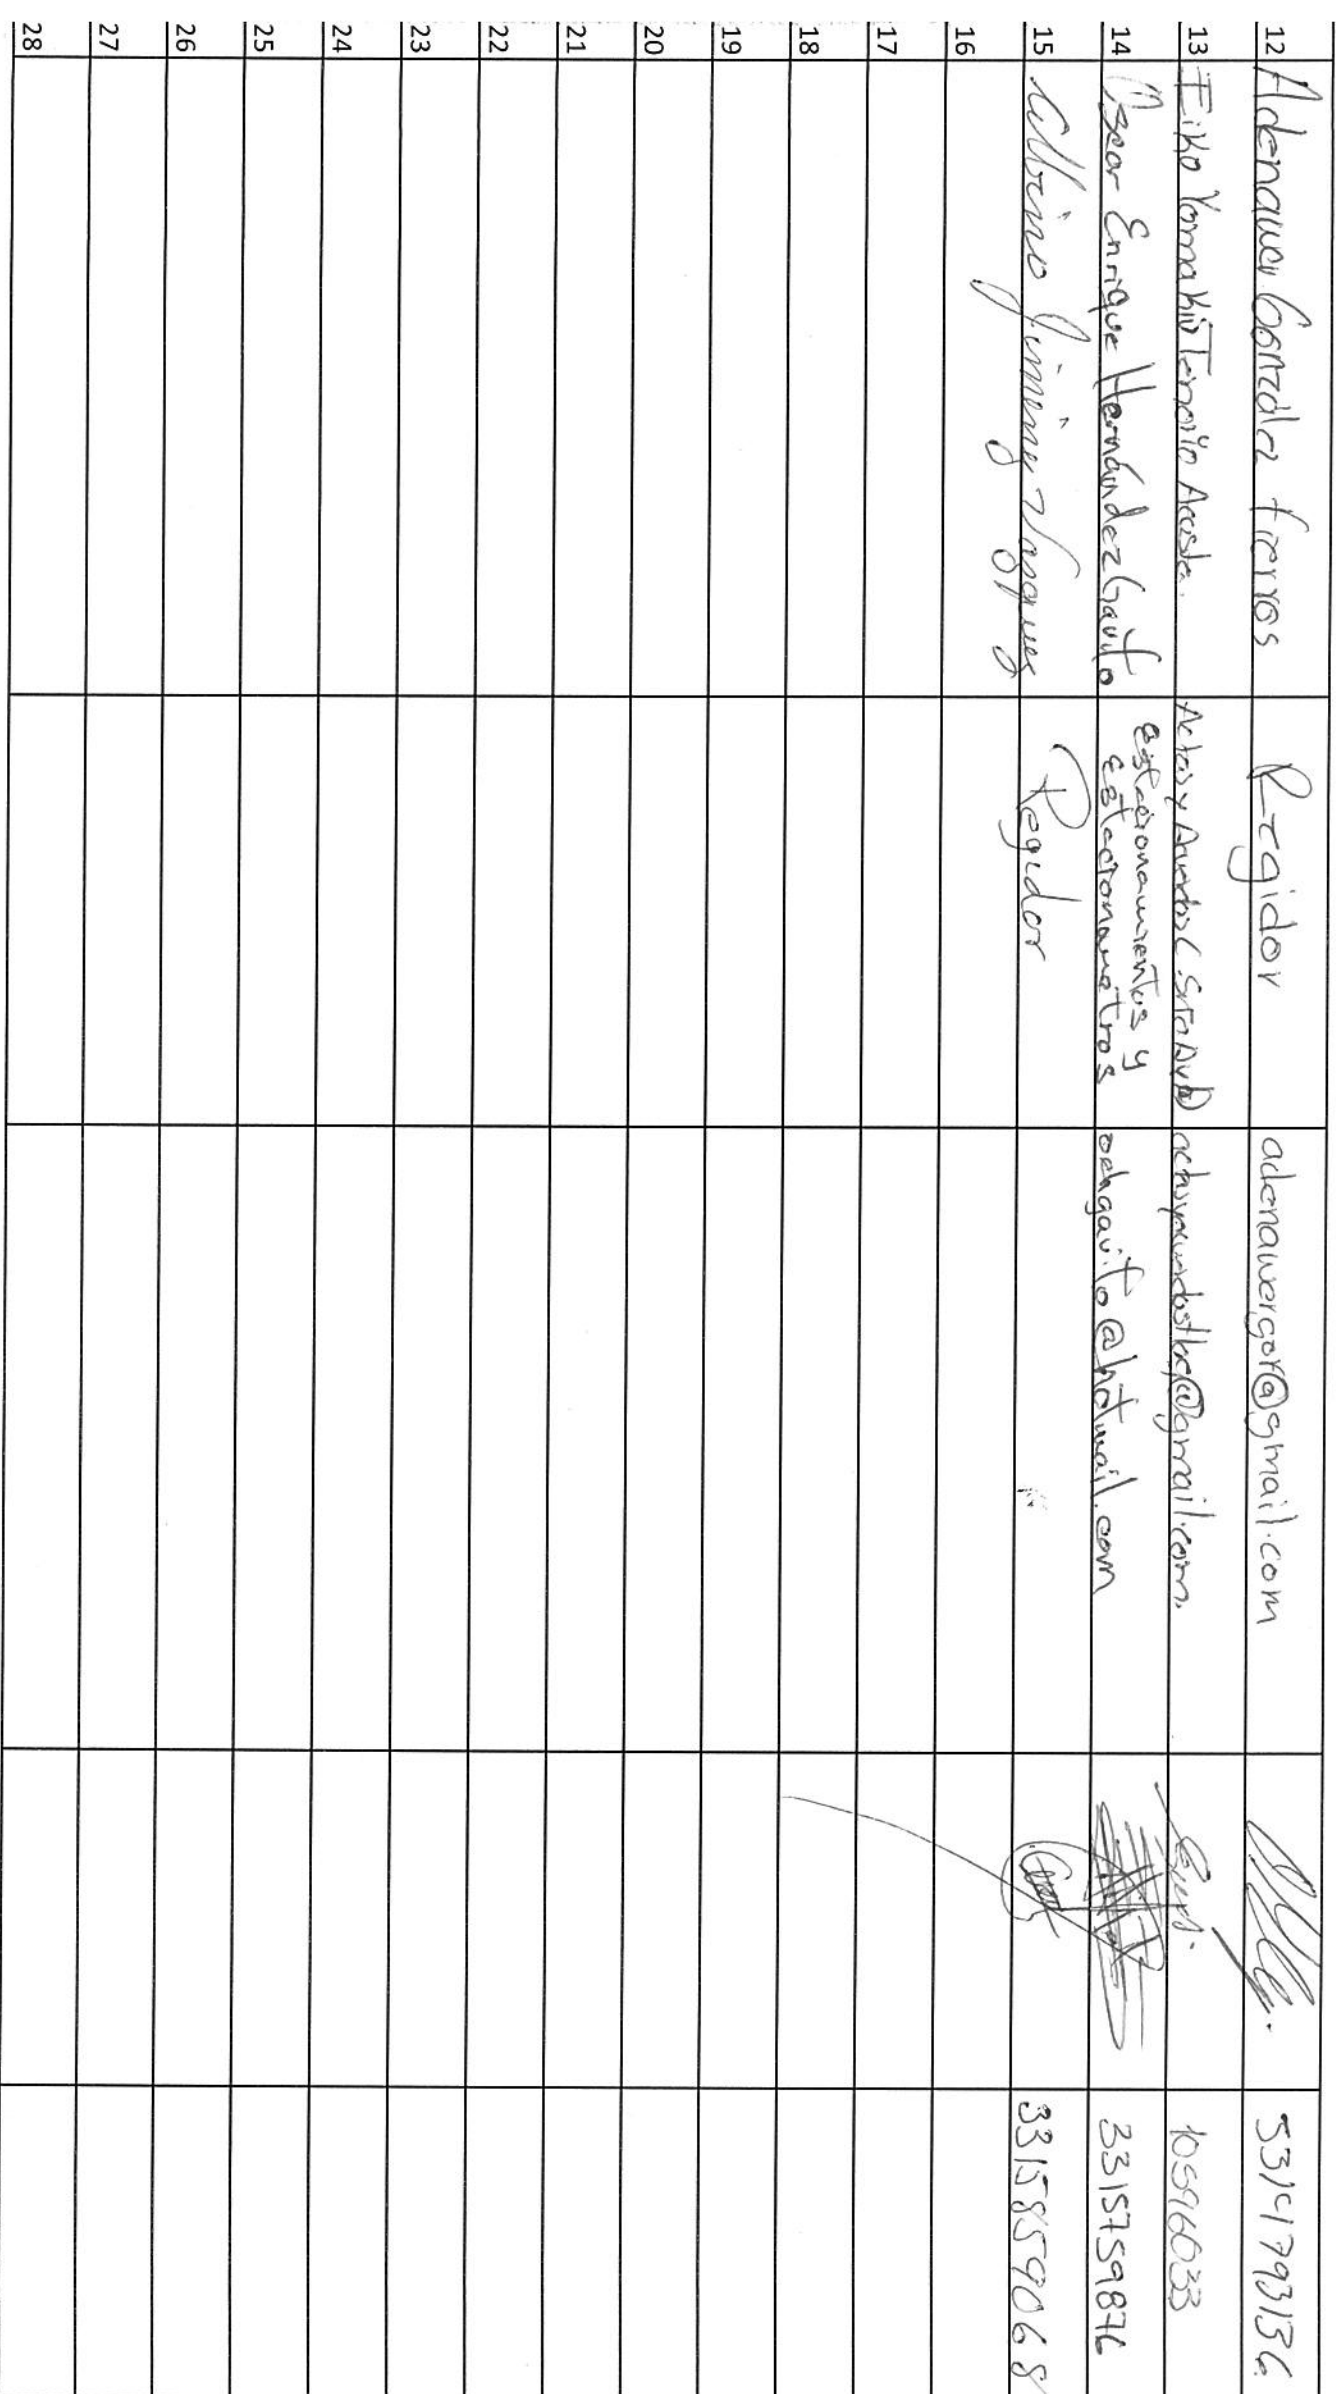 12 Adenawer González fierros Regidor adenawergor@gmail.com
13 Eiko Yomakio Tenorio Acosta. Actas y Acuerdos @gmail.com. 10596033
14 Oscar Enrique Hernández Gavito estacionamientos y
estacionometros oehgavito@hotmail.com 3315759876
15 Albino Jiménez Vasquez Regidor 3315859068
16
17
18
19
20
21
22
23
24
25
26
27
28